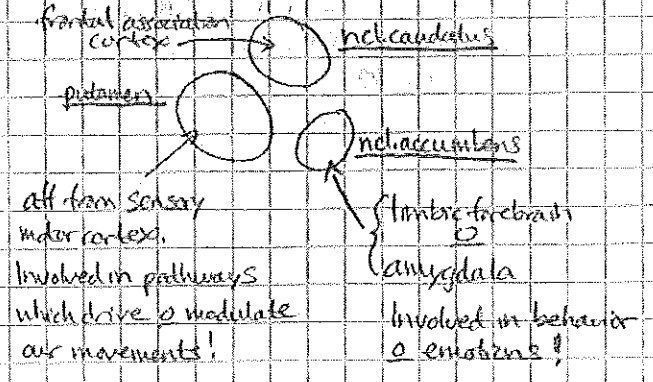 frontal association
cortex
ncl. caudatus
putamen
ncl. accumbens
aff from sensory
motor cortex.
Involved in pathways
which drive o modulate
our movements!
limbic forebrain
o
amygdala
Involved in behavior
o emotions!